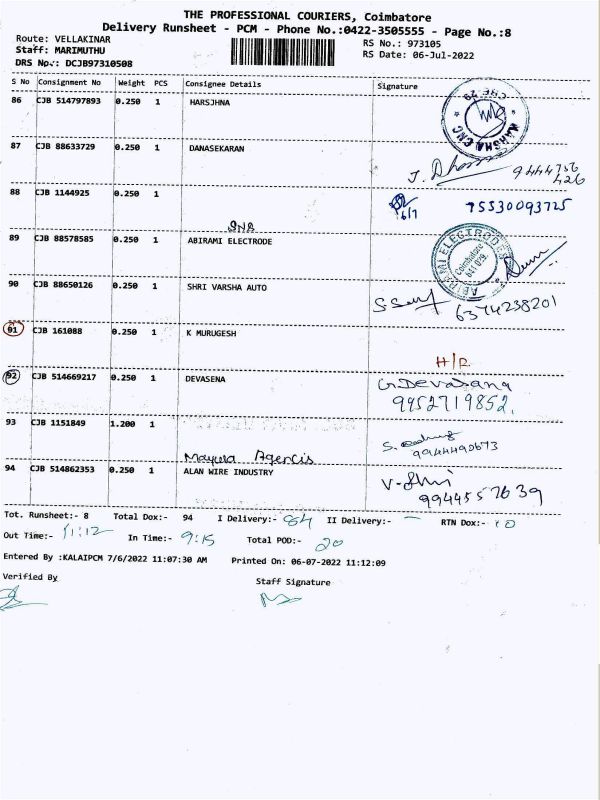 THE PROFESSIONAL COURIERS, Coimbatore
Delivery Runsheet - PCM - Phone No.:0422-3505555 - Page No.:8
Route: VELLAKINAR
RS No.: 973105
Staff: MARIMUTHU
RS Date: 06-Jul-2022
DRS No.: DCJB97310508
S No Consignment No Weight PCS Consignee Details Signature
86 CJB 514797893 0.250 1 HARSJHNA
87 CJB 88633729 0.250 1 DANASEKARAN
9444756
426
88 CJB 1144925 0.250 1
6/7 75530093725
89 CJB 88578585 0.250 1 ABIRAMI ELECTRODE
ABIRAMI ELECTRODES
Coimbatore
641 029.
90 CJB 88650126 0.250 1 SHRI VARSHA AUTO
6374238201
91 CJB 161088 0.250 1 K MURUGESH
H/R
92 CJB 514669217 0.250 1 DEVASENA
G.Devasana
9952719852.
93 CJB 1151849 1.200 1
9944490673
Mayura Agencis
94 CJB 514862353 0.250 1 ALAN WIRE INDUSTRY
9944557639
Tot. Runsheet:- 8 Total Dox:- 94 I Delivery:- 84 II Delivery:- — RTN Dox:- 10
Out Time:- 11:12 In Time:- 9:15 Total POD:- 20
Entered By :KALAIPCM 7/6/2022 11:07:30 AM Printed On: 06-07-2022 11:12:09
Verified By
Staff Signature